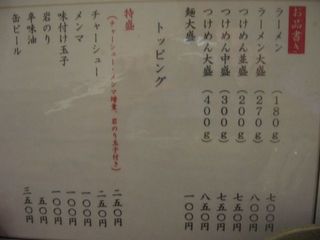 お品書き
ラーメン (180g) 七〇〇円
ラーメン大盛 (270g) 八〇〇円
つけめん並盛 (200g) 七五〇円
つけめん中盛 (300g) 七五〇円
つけめん大盛 (400g) 八五〇円
麺大盛 一〇〇円
トッピング
特盛 二五〇円
(チャーシュー・メンマ増量、岩のり玉子付き)
チャーシュー 二五〇円
メンマ 一〇〇円
味付け玉子 一〇〇円
岩のり 一〇〇円
辛味油 五〇円
缶ビール 三五〇円